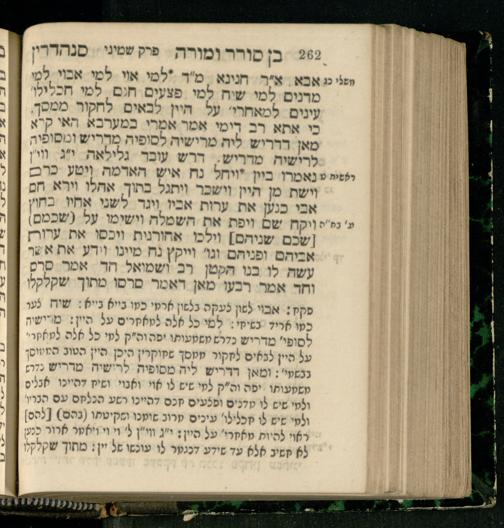 262 בן סורר ומורה פרק שמיני סנהדרין
משלי כג אבא א״ר חנינא מ״ד למי אוי למי אבוי למי
מדנים למי שיח למי פצעים חנם למי חכלילו׳
עינים למאחרי׳ על היין לבאים לחקור ממסך
כי אתא רב דימי אמר אמרי במערבא האי קרא
מאן דדריש ליה מרישיה לסופיה מדריש ומסופיה
לרישיה מדריש. דרש עובר גלילאה י״ג ווי״ן
ראשית ט נאמרו ביין ויחל נח איש האדמה ויטע כרם
וישת מן היין וישכר ויתגל בתוך אהלו וירא חם
אבי כנען את ערות אביו ויגד לשני אחיו בחוץ
ויקח שם ויפת את השמלה וישימו על (שכמם)
[שכם שניהם] וילכו אחורנית ויכסו את ערות
אביהם ופניהם וגו׳ וייקץ נח מיינו וידע את אשר
עשה לו בנו הקטן רב ושמואל חד אמר סרס
וחד אמר רבעו מאן דאמר סרסו מתוך שקלקלו
אבוי לשון לעקה בלשון ארמי כמו בייא בייא: שיח לער
כמו אריד בשיחי: למי כל אלה למאחרים על היין: מרישיה
לסופי׳ מדריש נדרש משמעותו יפה וה״ק למי כל אלה למאחרי׳
על היין לבאים לחקור ממסך שחוקרין היכן היין הטוב
ומאן דדריש ליה מסופיה לרישיה מדריש נדרש
משמעותו יפה וה״ק למי שיש לו אוי ואבוי ושיח דהיינו אבלים
ולמי שיש לו מדנים ופצעים חנם דהיינו רשע
ולמי שיש לו חכלילו׳ עינים מרוב שומנו (בהם) [להם]
ראוי להיות מאחרי׳ על היין: י״ג ווי״ן ל׳ וי
לא חשיב אלא עד שידע דבגמר לו עונשו של יין: מתוך שקלקלו